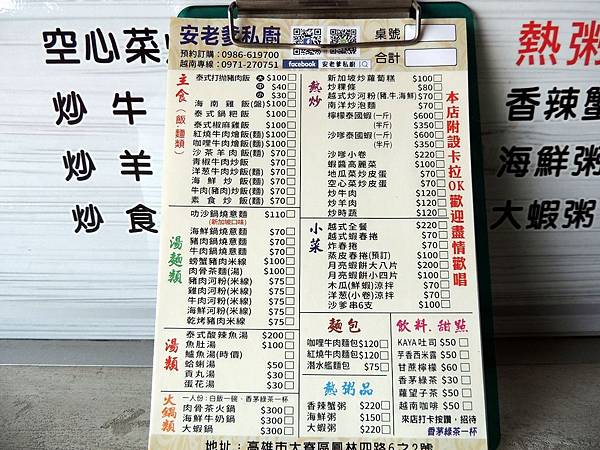 安老爹私廚
預約訂購：0986-619700
越南專線：0971-270751
facebook 安老爹私廚
桌號
合計
主食(飯麵類)
泰式打拋豬肉飯 大 $100
中 $40
小 $30
海南雞飯(盤) $100
泰式鍋粑飯 $100
泰式椒麻雞飯 $100
紅燒牛肉燴飯(麵) $100
咖哩牛肉燴飯(麵) $100
沙茶羊肉飯(麵) $70
青椒牛肉炒飯 $70
洋蔥牛肉炒飯(麵) $70
海鮮炒飯(麵) $70
牛肉(豬肉)炒飯(麵) $70
素食炒飯 $70
湯麵類
叻沙鍋燒意麵 $110
(新加坡口味)
海鮮鍋燒意麵 $70
豬肉鍋燒意麵 $70
牛肉鍋燒意麵 $70
螃蟹豬肉米線 $100
肉骨茶麵(湯) $100
豬肉河粉(米線) $75
雞肉河粉(米線) $75
牛肉河粉(米線) $75
海鮮河粉(米線) $75
乾烤豬肉米線 $75
湯類
泰式酸辣魚湯 $200
魚肚湯 $100
鱸魚湯(時價)
蛤蜊湯 $50
貢丸湯 $30
蛋花湯 $30
火鍋類
一人份：白飯一碗、香茅綠茶一杯
肉骨茶火鍋 $300
海鮮牛奶鍋 $300
大蝦鍋 $300
熱炒
新加坡炒蘿蔔糕 $100
炒粿條 $80
越式炒河粉(豬,牛,海鮮) $70
南洋炒泡麵 $70
檸檬泰國蝦(一斤) $600
(半斤) $350
沙嗲泰國蝦(一斤) $600
(半斤) $350
沙嗲小卷 $220
蝦醬高麗菜 $100
地瓜菜炒皮蛋 $100
空心菜炒皮蛋 $100
炒牛肉 $100
炒羊肉 $100
炒時蔬 $100
小菜
越式全餐 $220
越式蝦春捲 $70
炸春捲 $70
蒸皮春捲(預訂) $100
月亮蝦餅大八片 $200
月亮蝦餅小四片 $100
木瓜(鮮蝦)涼拌 $70
洋蔥(小卷)涼拌 $70
沙爹串6支 $100
本店附設卡拉OK歡迎盡情歡唱
麵包
咖哩牛肉麵包 $120
紅燒牛肉麵包 $120
潛水艦麵包 $75
熱粥品
香辣蟹粥 $220
海鮮粥 $150
大蝦粥 $220
飲料.甜點
KAYA吐司 $50
芋香西米露 $50
甘蔗檸檬 $60
香茅綠茶 $30
蘿望子茶 $50
越南咖啡 $50
來店打卡按讚，招待
香茅綠茶一杯
地址：高雄市大寮區鳳林四路6之2號
空心菜
炒牛
炒羊
炒食
熱粥
香辣蟹
海鮮粥
大蝦粥